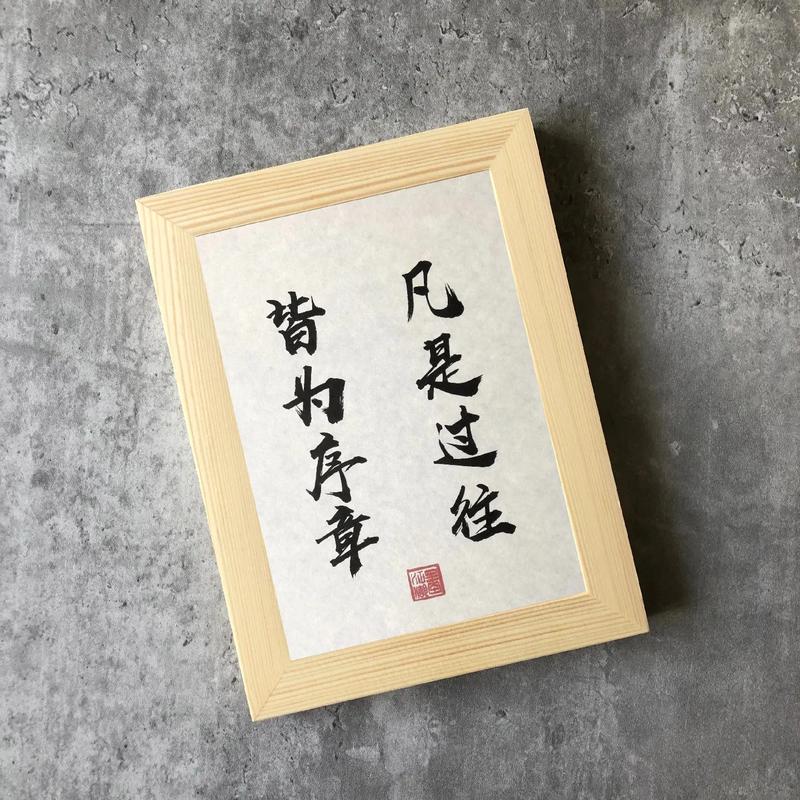 凡是过往
皆为序章